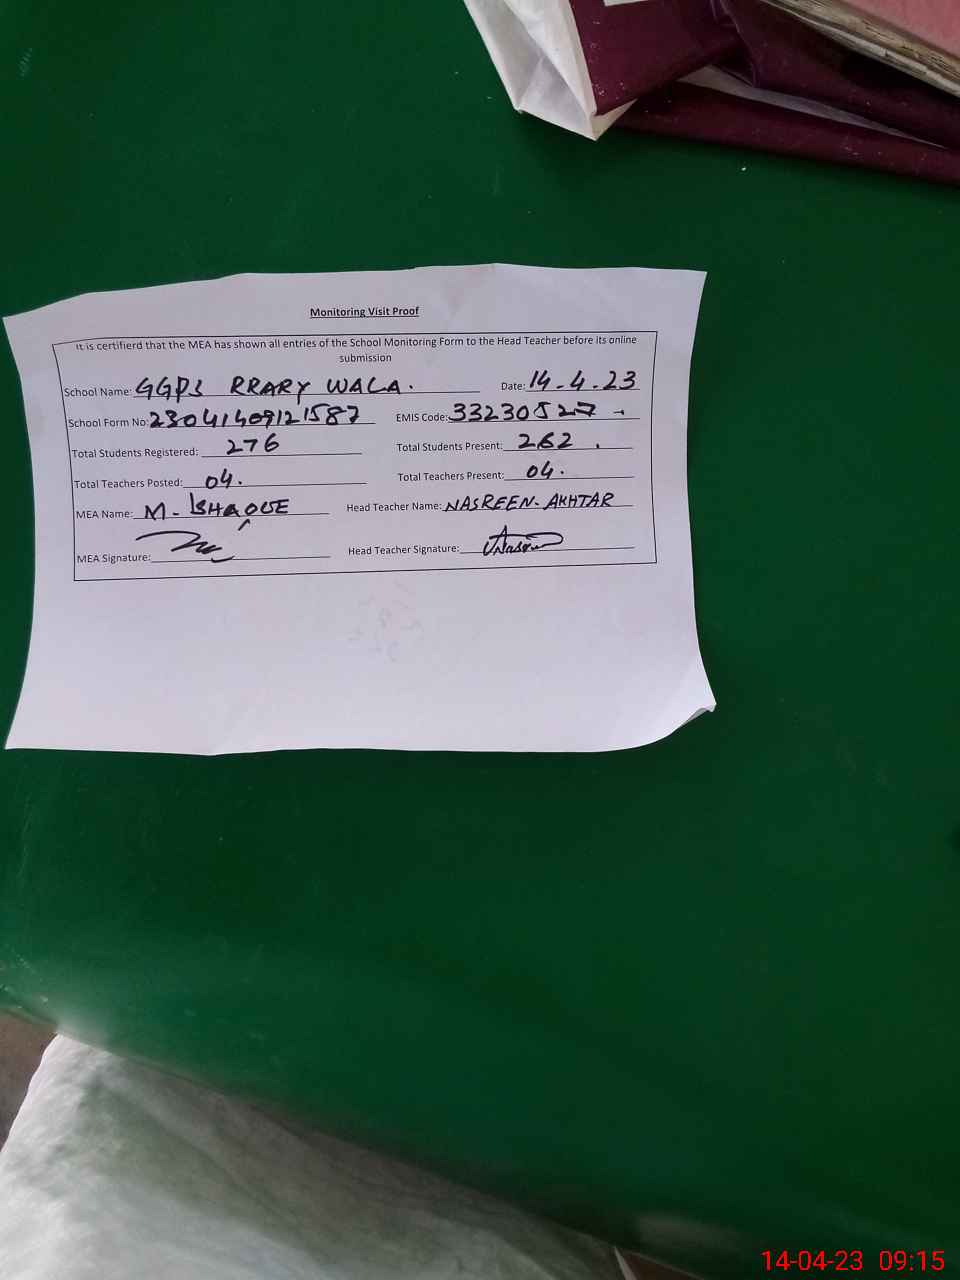 Monitoring Visit Proof
It is certifierd that the MEA has shown all entries of the School Monitoring Form to the Head Teacher before its online
submission
School Name: GGPS RRARY WALA. Date: 14-4-23
School Form No: 23041409121587 EMIS Code: 33230527
Total Students Registered: 276 Total Students Present: 262.
Total Teachers Posted: 04. Total Teachers Present: 04.
MEA Name: M-ISHAQUE Head Teacher Name: NASREEN-AKHTAR
MEA Signature: Head Teacher Signature:
14-04-23 09:15